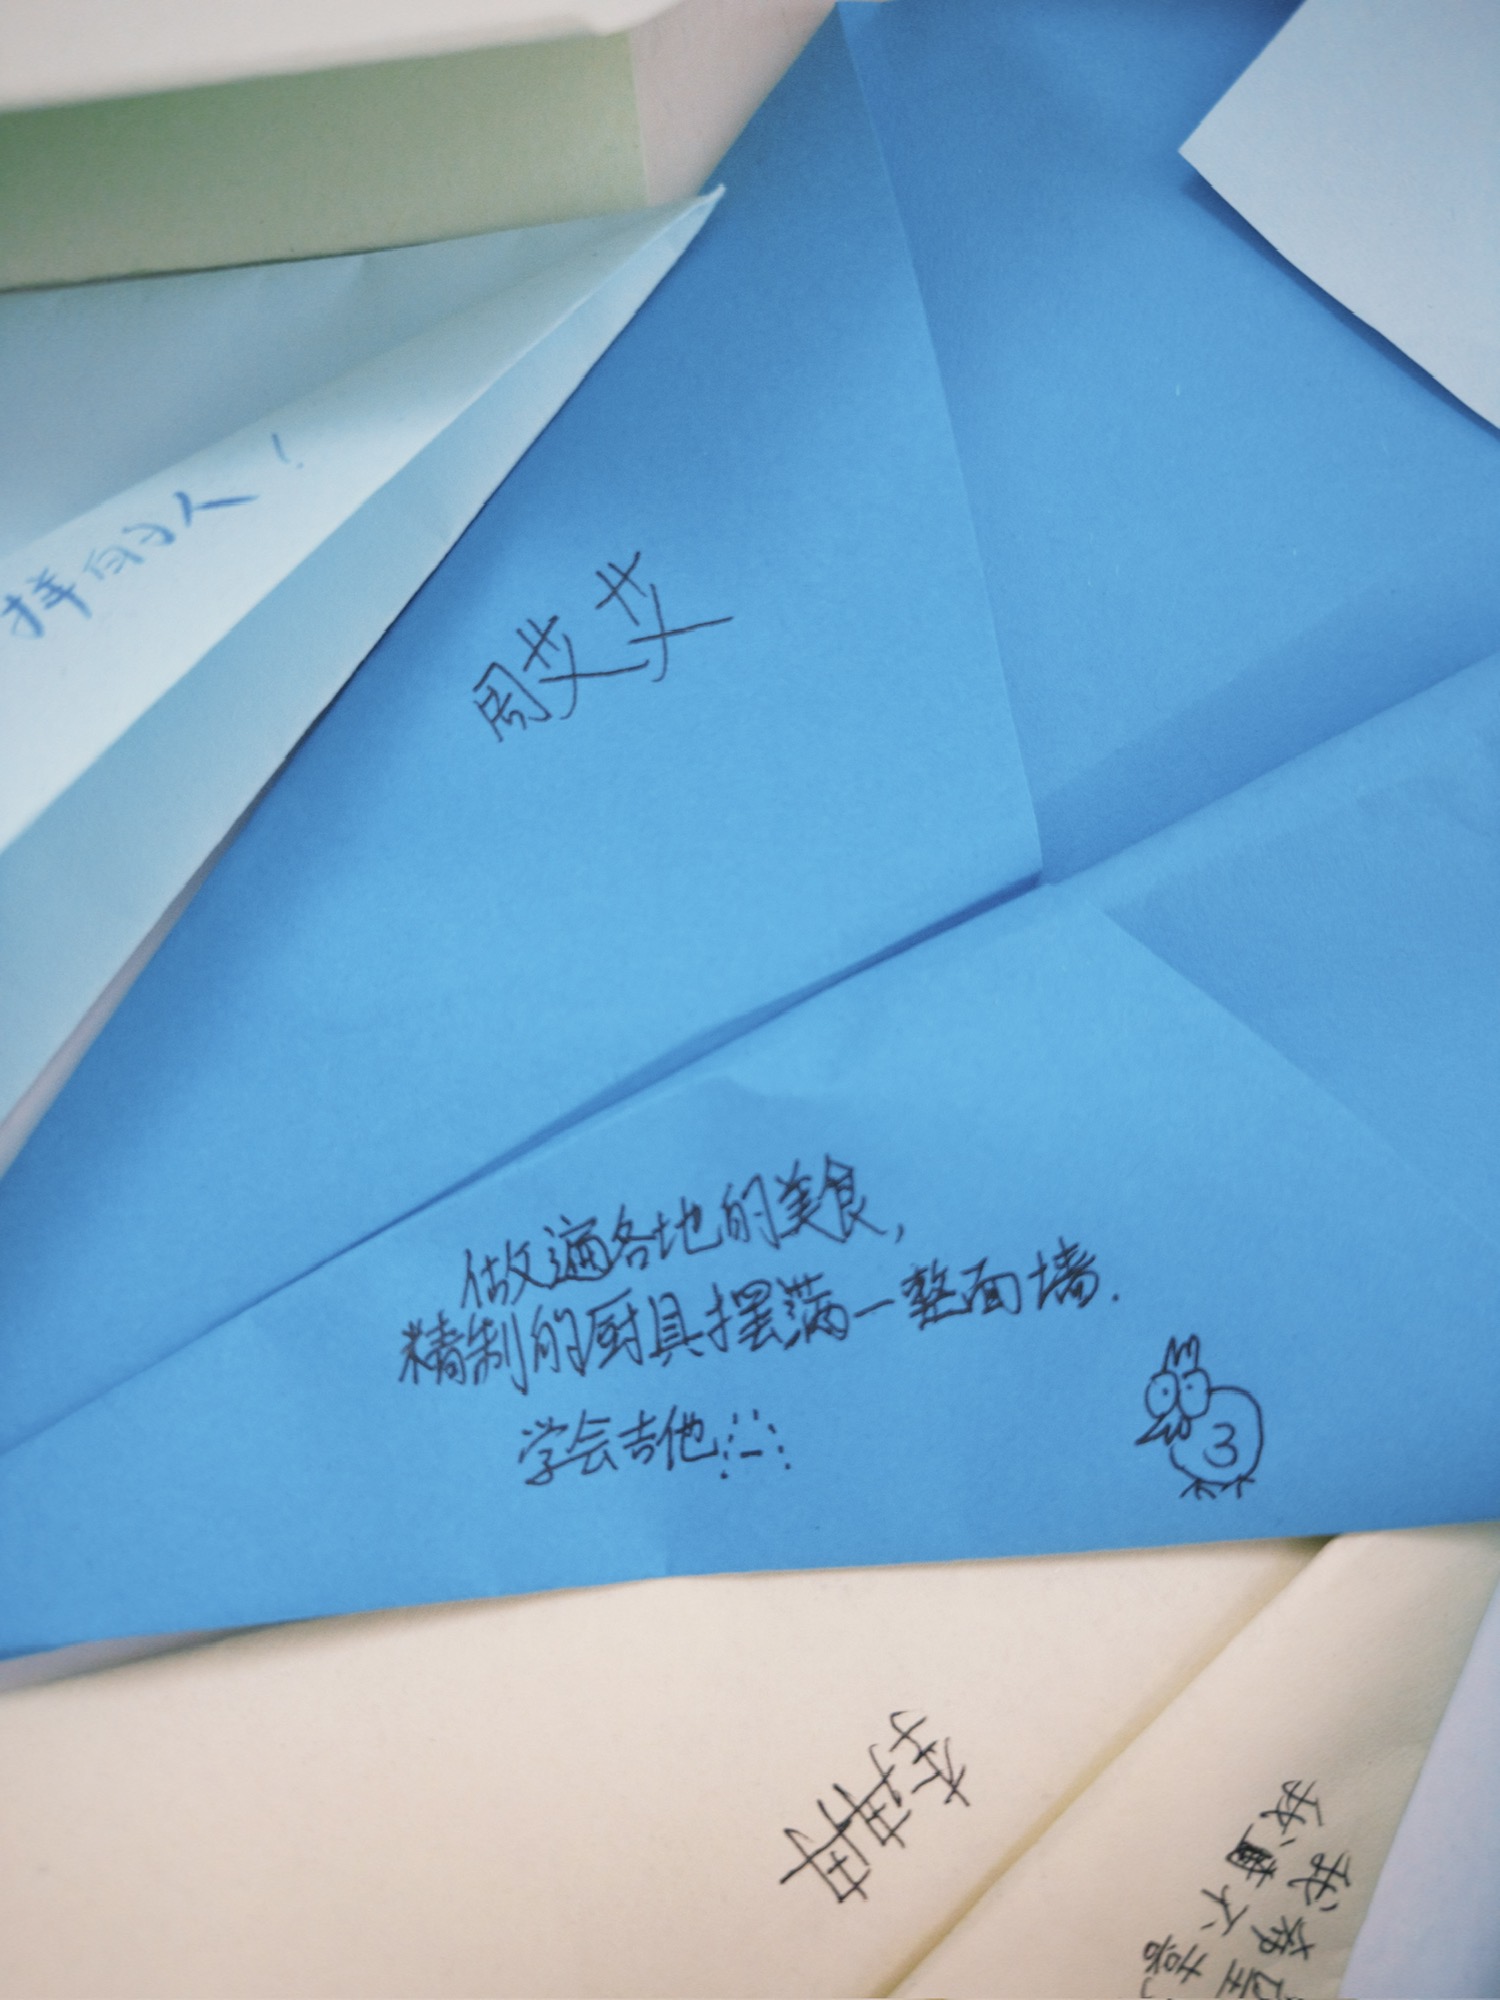 样的人！
周艾艾
做遍各地的美食,
精制的厨具摆满一整面墙.
学会吉他
3
我希望
我
不